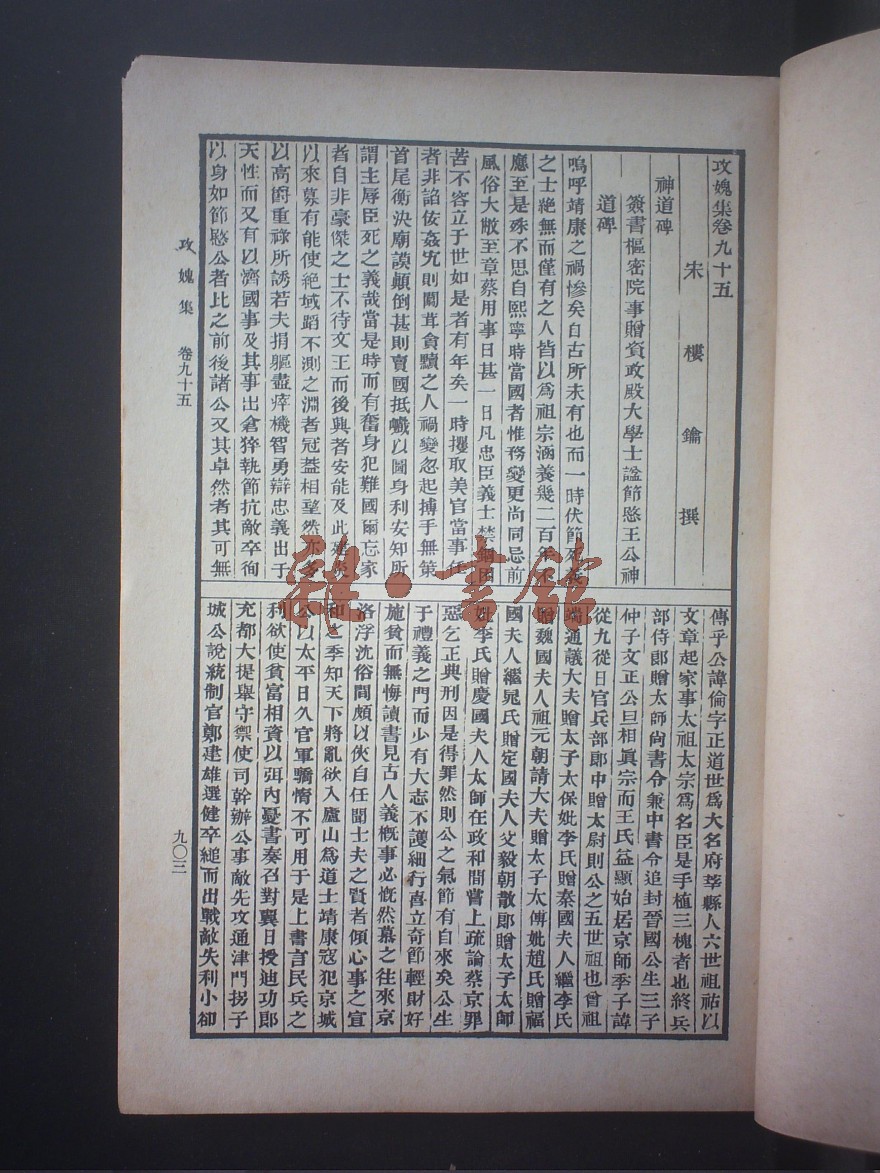 攻媿集卷九十五
宋樓鑰撰
神道碑
簽書樞密院事贈資政殿大學士諡節愍王公神
道碑
嗚呼靖康之禍慘矣自古所未有也而一時伏節死義
之士絕無而僅有之人皆以爲祖宗涵養幾二百年不
應至是殊不思自熙寧時當國者惟務變更尚同忌前
風俗大敝至章蔡用事日甚一日凡忠臣義士禁錮困
苦不容立于世如是者有年矣一時攫取美官當事任
者非諂依姦宄則闒茸貪黷之人禍變忽起搏手無策
首尾衡決廟謨顚倒甚則賣國抵巇以圖身利安知所
謂主辱臣死之義哉當是時而有奮身犯難國爾忘家
者自非豪傑之士不待文王而後興者安能及此建炎
以來募有能使絕域蹈不測之淵者冠蓋相望然亦多
以高爵重祿所誘若夫捐軀盡瘁機智勇辯忠義出于
天性而又有以濟國事及其事出倉猝執節抗敵卒徇
以身如節愍公者比之前後諸公又其卓然者其可無
傳乎公諱倫字正道世爲大名府莘縣人六世祖祜以
文章起家事太祖太宗爲名臣是手植三槐者也終兵
部侍郞贈太師尙書令兼中書令追封晉國公生三子
仲子文正公旦相眞宗而王氏益顯始居京師季子諱
從九從日官兵部郞中贈太尉則公之五世祖也曾祖
端通議大夫贈太子太保妣李氏贈秦國夫人繼李氏
贈魏國夫人祖元朝請大夫贈太子太傅妣趙氏贈福
國夫人繼晁氏贈定國夫人父毅朝散郞贈太子太師
妣李氏贈慶國夫人太師在政和間嘗上疏論蔡京罪
惡乞正典刑因是得罪然則公之氣節有自來矣公生
于禮義之門而少有大志不護細行喜立奇節輕財好
施貧而無悔讀書見古人義槪事必慨然慕之往來京
洛浮沈俗間頗以俠自任聞士夫之賢者傾心事之宣
和之季知天下將亂欲入廬山爲道士靖康寇犯京城
公以太平日久官軍驕惰不可用于是上書言民兵之
利欲使貧富相資以弭內憂書奏召對翼日授迪功郞
充都大提舉守禦使司幹辦公事敵先攻通津門拐子
城公說統制官鄭建雄選健卒縋而出戰敵失利小卻
攻媿集 卷九十五
九〇三
雜·書館